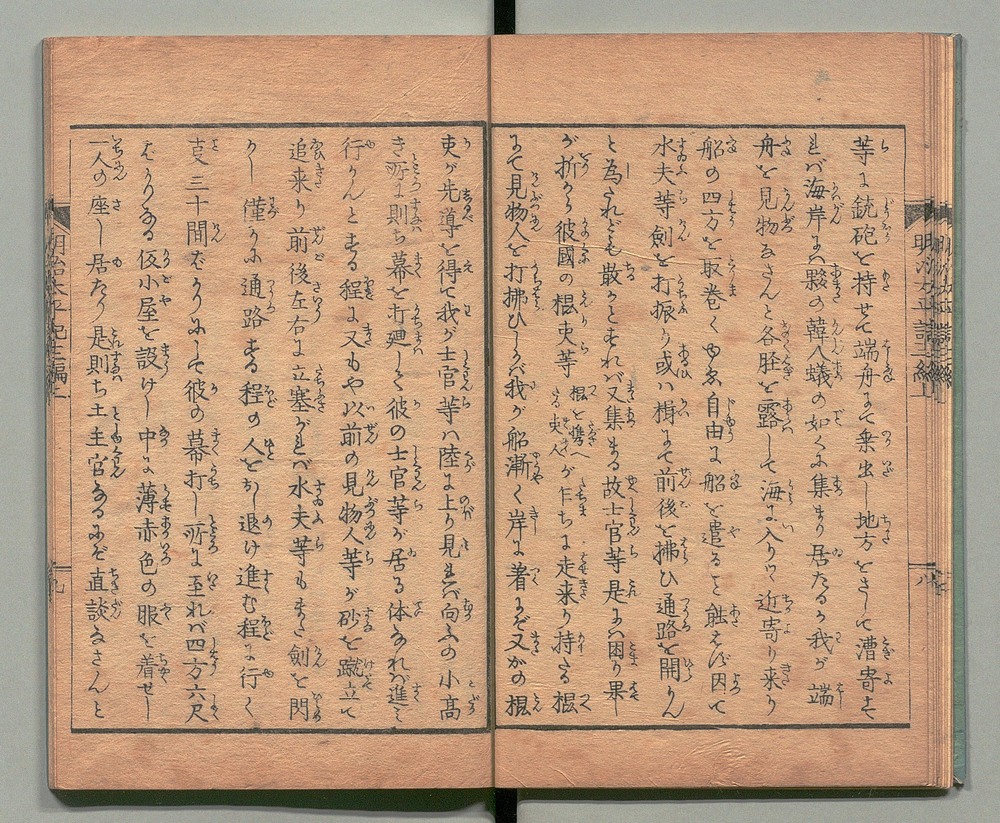 等に銃砲を持せて端舟にて乗出し地方をさして漕寄する
れバ海岸にハ夥の韓人蟻の如くに集まり居たるが我が端
舟を見物なさんと各脛を露して海に入りつゝ近寄り来り
船の四方を取巻くゆゑ自由に船を遣ること能はず因て
水夫等劍を打振り或ハ楫にて前後を拂ひ通路を開かん
と為たれども散かとすれバ又集まる故士官等是にハ困り果し
が折から彼國の棍吏等棍を携へる吏人が乍ちに走来り持たる棍
にて見物人を打拂ひしかバ我が船漸く岸に着にぞ又かの棍
吏が先導を得て我が士官等ハ陸に上り見れバ向ふの小高
き所に則ち幕を打廻して彼の士官等が居る体なれバ進み
行かんとする程に又もや以前の見物人等が砂を蹴立て
追来り前後左右に立塞がれバ水夫等もまた劍を閃
かし僅かに通路する程の人をおし退け進む程に行く
事三十間ばかりにして彼の幕打し所に至れバ四方六尺
ばかりなる仮小屋を設けし中に薄赤色の服を着せし
一人の座し居たり是則ち土主官なるにぞ直談なさんと
明治太平記三編上
八
九